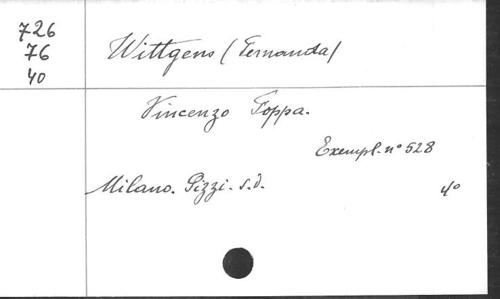 726
76
40
Wittgens (Fernanda)
Vincenzo Foppa.
Exempl. n° 528
Milano. Pizzi. s.d.
4°